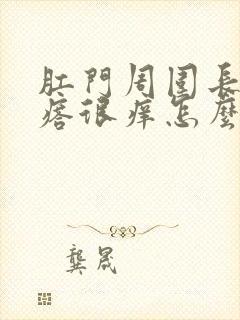 肛門周圍長
痞很痒怎麼
龔晟